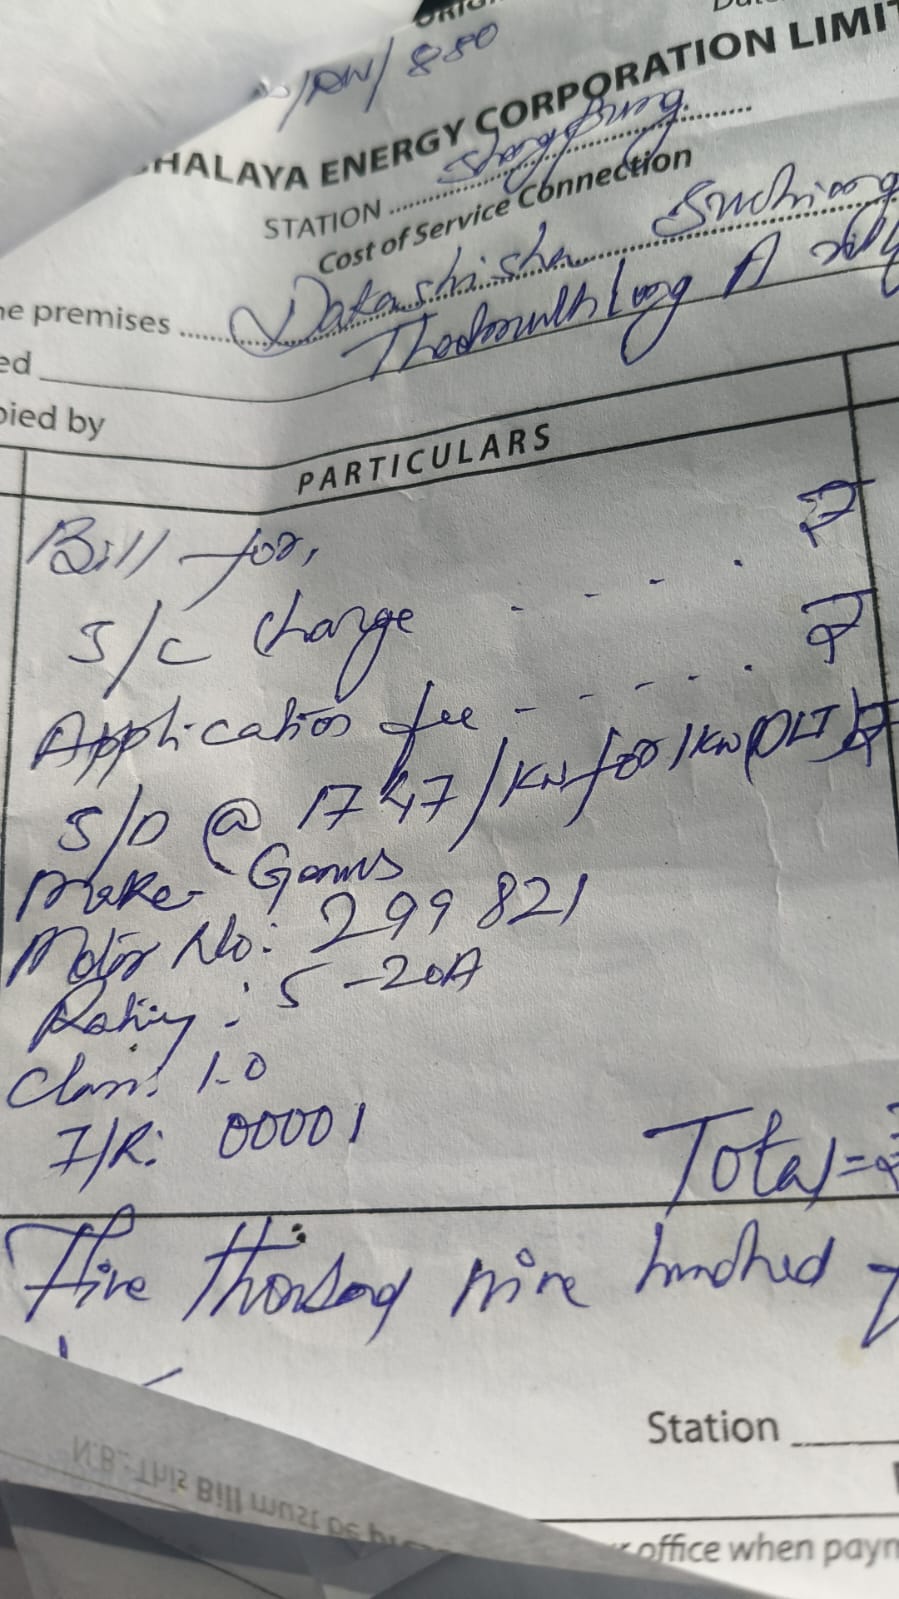 ORIG
/AW/880
HALAYA ENERGY CORPORATION LIMIT
STATION ........ Shangpung
Cost of Service Connection
he premises ..... Dakashisha Suchiang
A
ed
pied by
PARTICULARS
Bill for,
S/C charge - - - - - ₹
Application fee - - - - - - ₹
S/D @ 1747/KW for 1KW (DLT) ₹
Make- Genus
Metor No: 299821
Rating: 5-20A
Class: 1.0
I/R: 00001
Total = ₹
Five thousand nine hundred
Station
N.B.-This Bill must be pr
office when paym